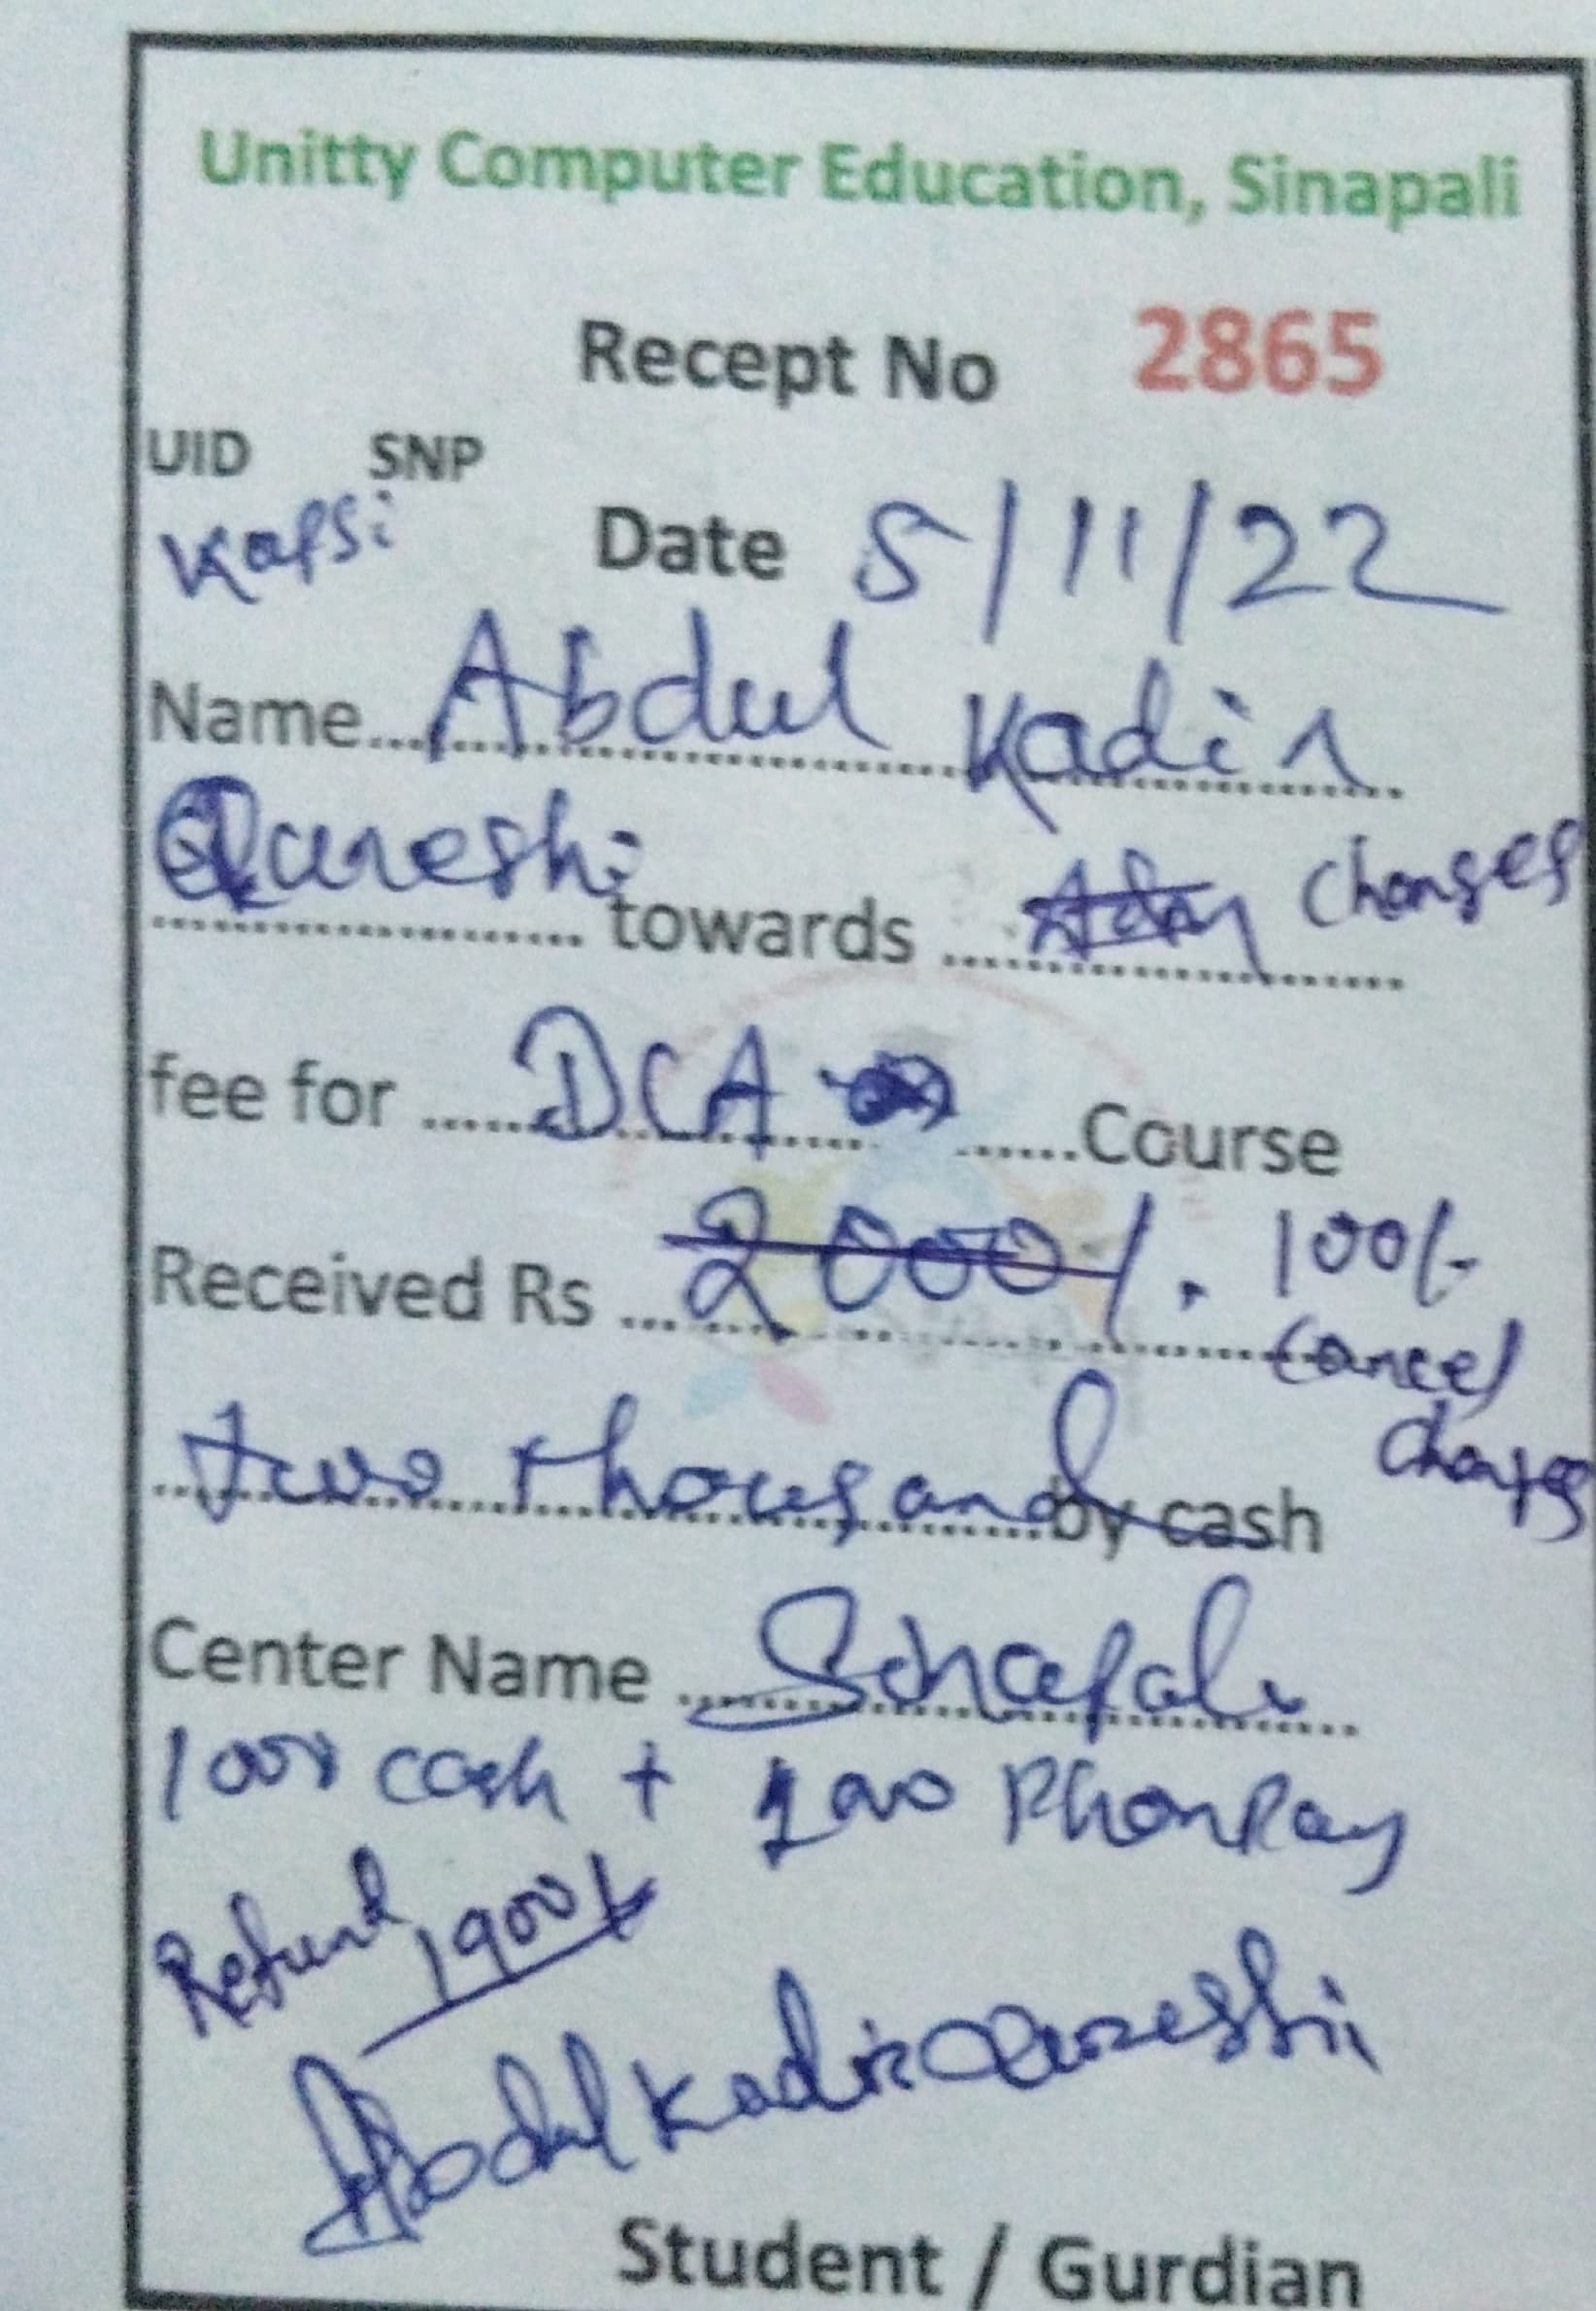 Unitty Computer Education, Sinapali
Recept No 2865
UID SNP
Kapsi Date 5/11/22
Name Abdul Kadir
Qureshi towards Charges
fee for DCA Course
Received Rs 2000/- 100/-
Cancel
Charges
two thousand by cash
Center Name Sinapali
1000 cash + 1000 PhonPay
Refund 1900/-
Abdul Kadir Qureshi
Student / Gurdian